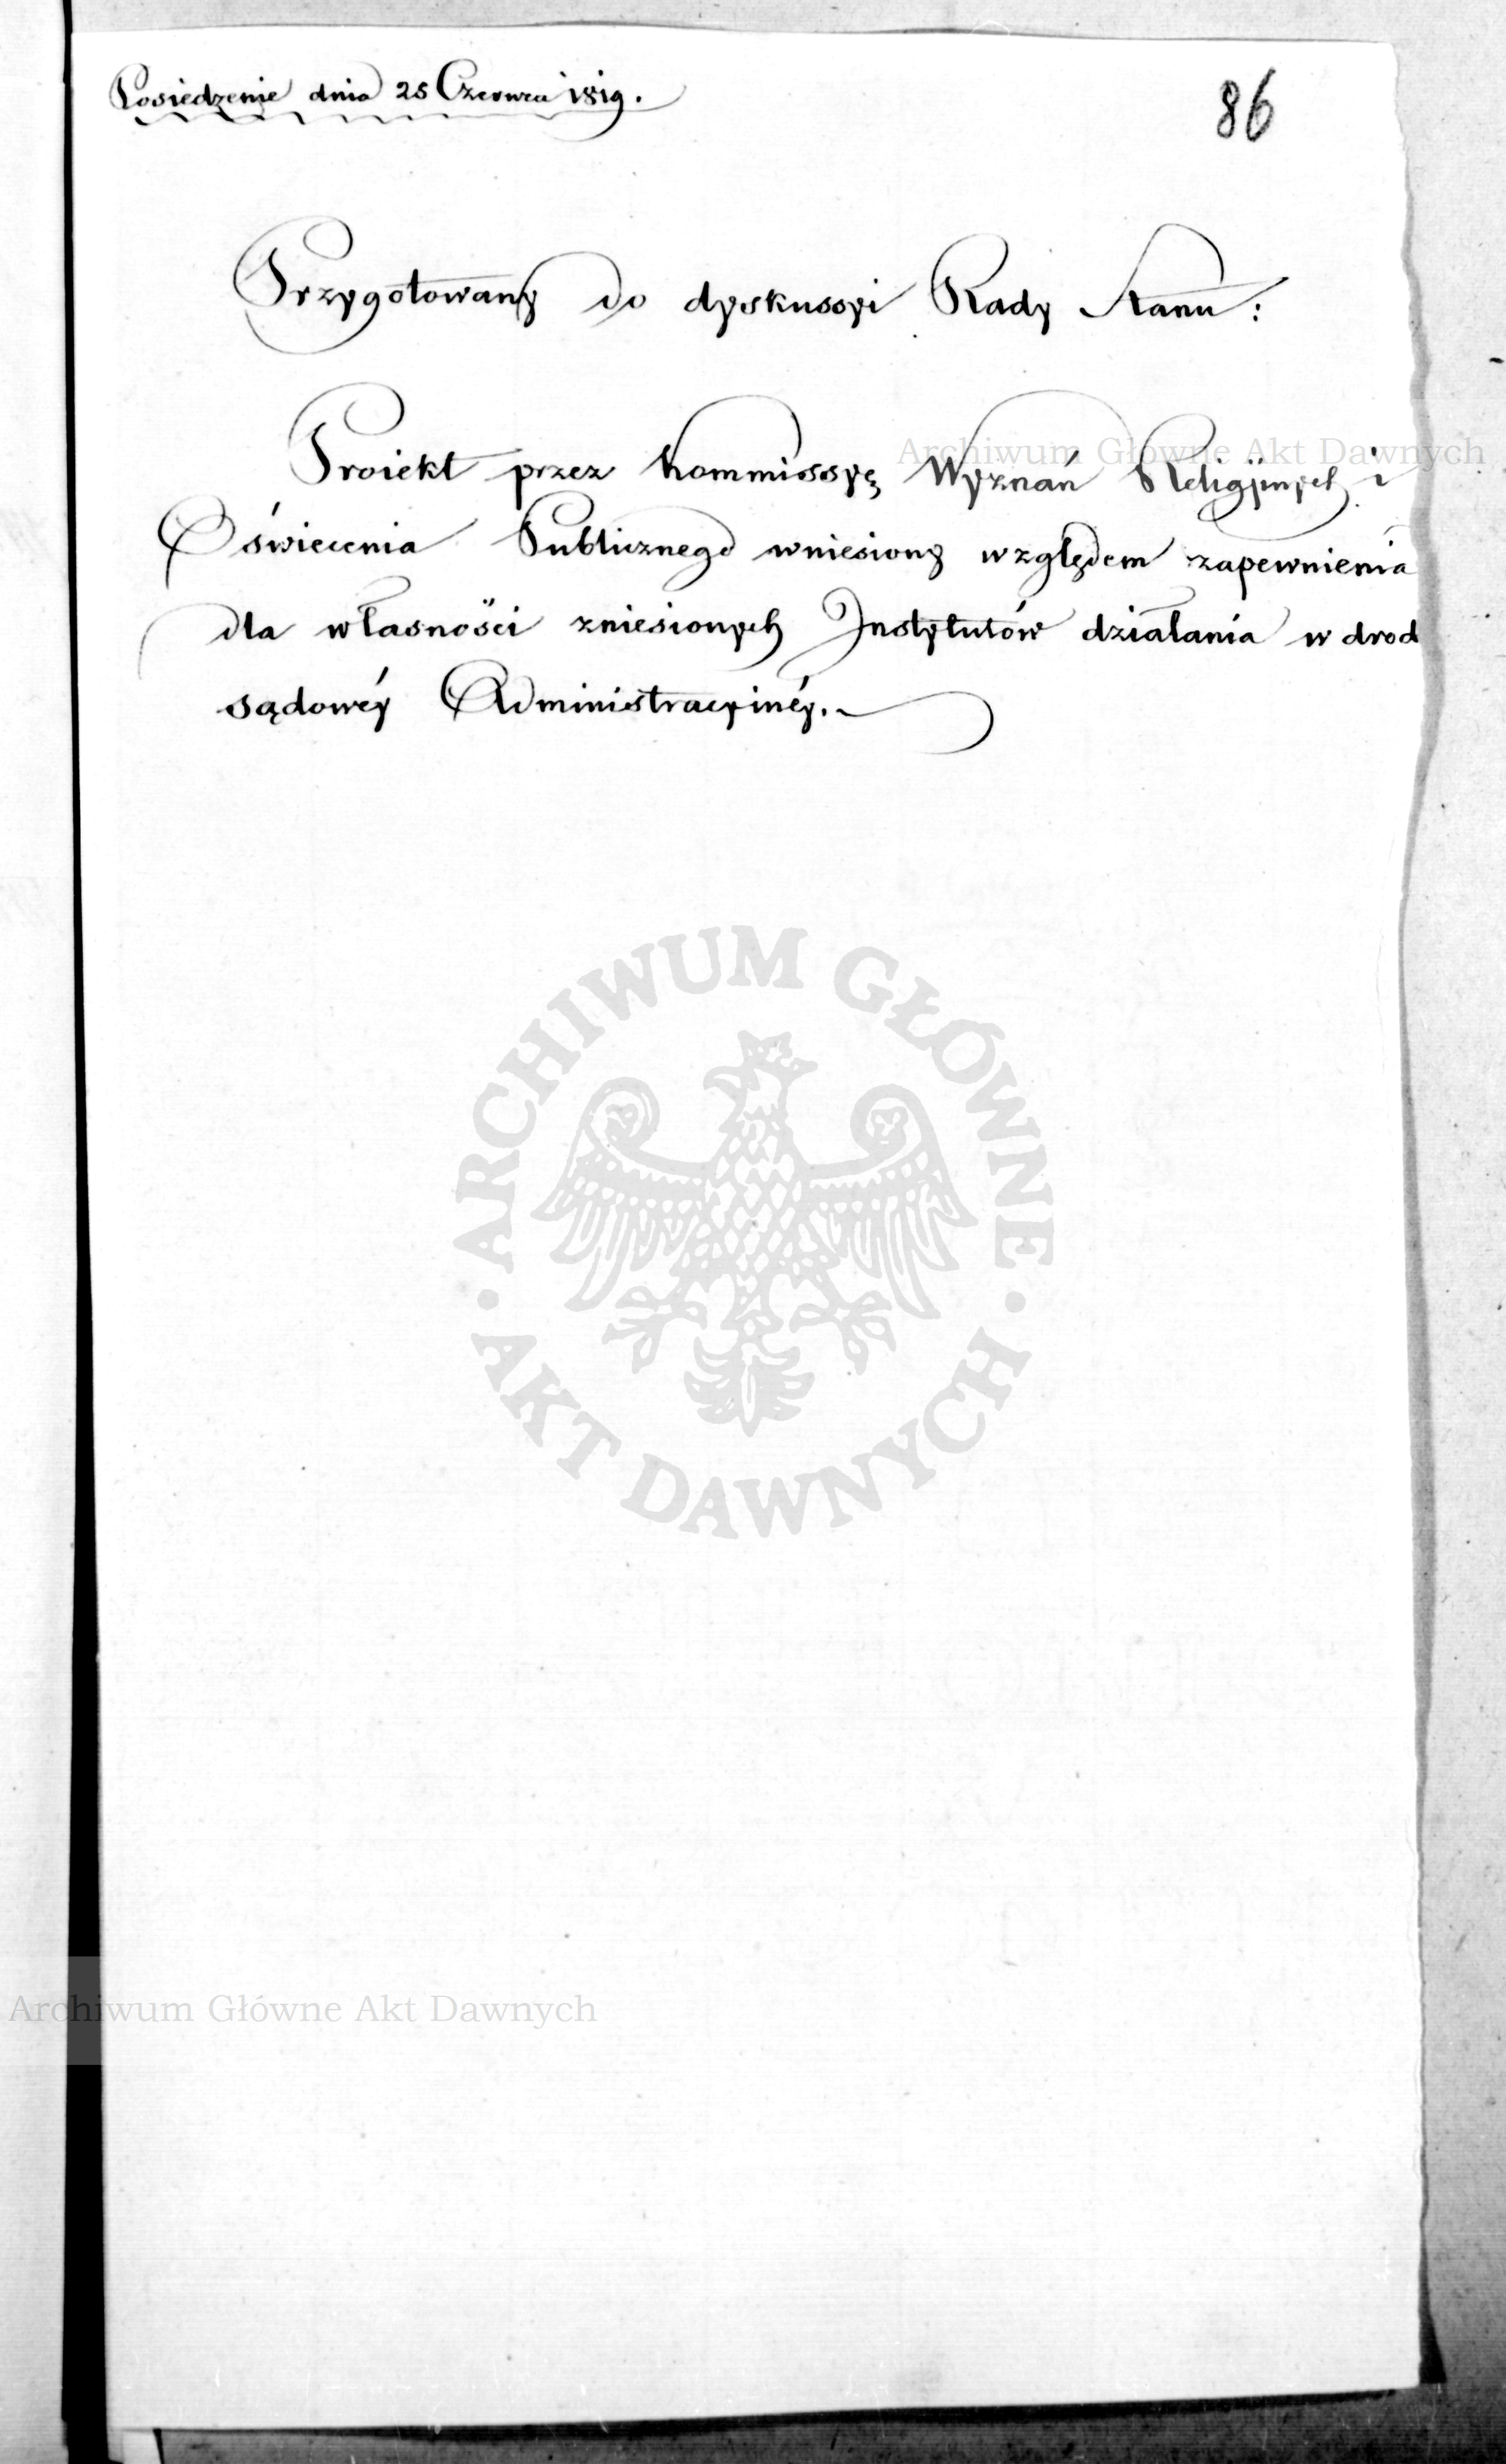 Posiedzenie dnia 25 Czerwca 1819.
86
Przygotowany do dyskussyi Rady Stanu:
Proiekt przez Kommissyę Wyznań Religijnych i
Oświecenia Publicznego wniesiony względem zapewnienia
dla własności zniesionych Instytutów działania w drod
sądowéy Administracyinéy.
Archiwum Główne Akt Dawnych
ARCHIWUM GŁÓWNE
AKT DAWNYCH
Archiwum Główne Akt Dawnych